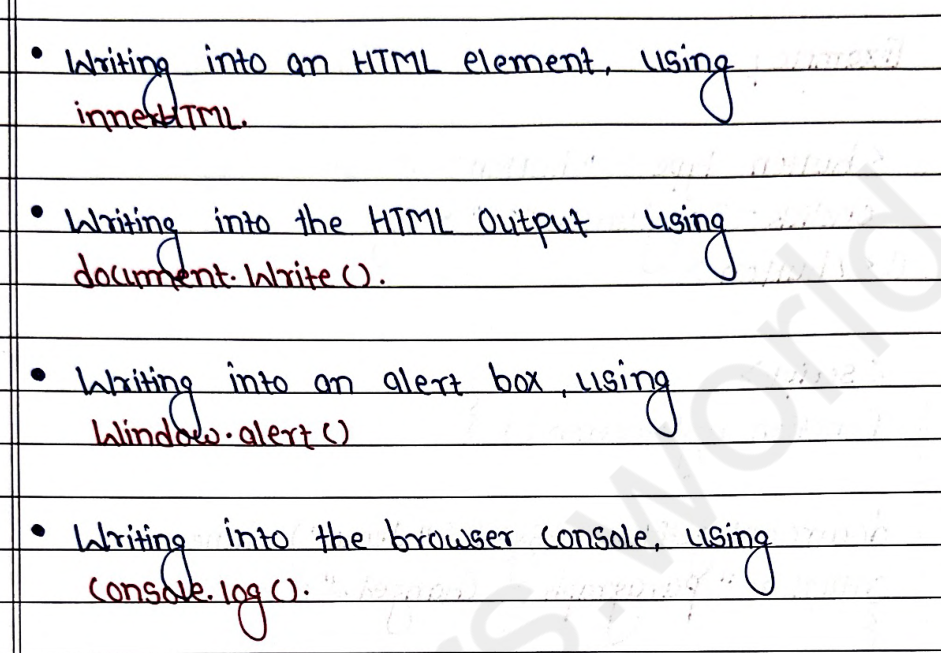 • Writing into an HTML element, using
innerHTML.
• Writing into the HTML Output using
document.Write().
• Writing into an alert box, using
Window.alert()
• Writing into the browser console, using
Console.log().
rs.world